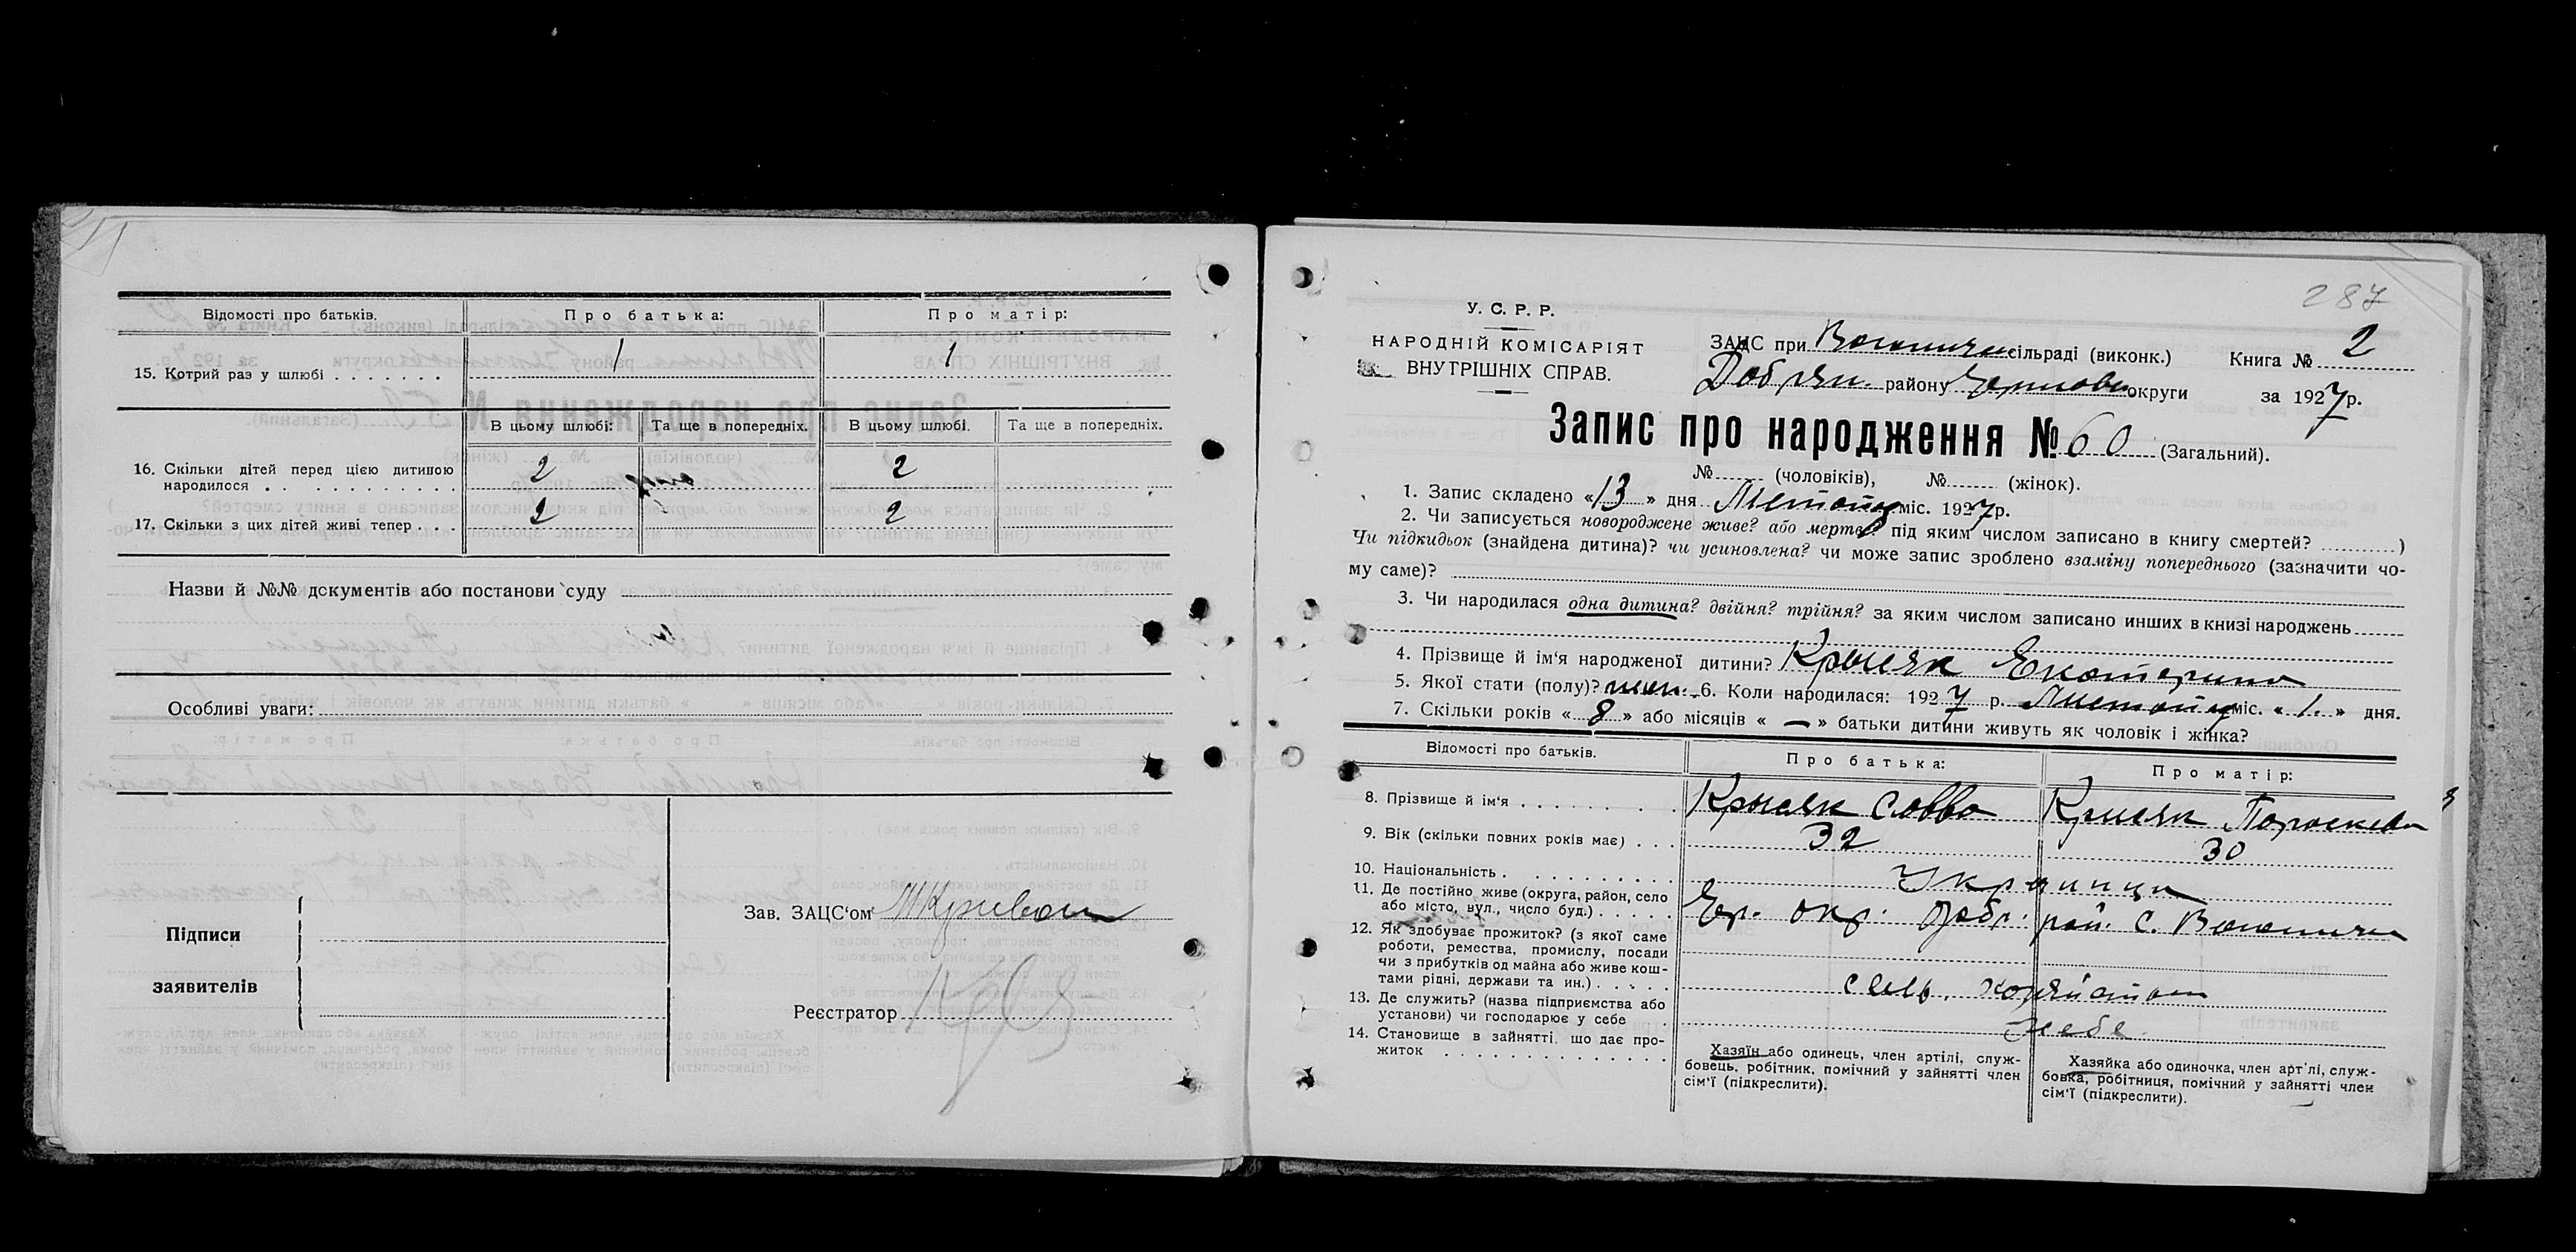 Відомості про батьків. Про батька: Про матір:
15. Котрий раз у шлюбі . . . . . . . 1 1
В цьому шлюбі: Та ще в попередніх. В цьому шлюбі. Та ще в попередніх.
16. Скільки дітей перед цією дитиною 2 2
народилося
17. Скільки з цих дітей живі тепер . . . 2 2
Назви й №№ документів або постанови суду
Особливі уваги:
Підписи
заявителів
Зав. ЗАЦС'ом
Реєстратор
287
У. С. Р. Р.
НАРОДНІЙ КОМІСАРІЯТ
ВНУТРІШНІХ СПРАВ.
ЗАЦС при сільраді (виконк.) Книга № 2
Добрян. району округи за 1927р.
Запис про народження № 60 (Загальний).
№ (чоловіків), № (жінок).
1. Запис складено «13» дня Листопад міс. 1927р.
2. Чи записується новороджене живе? або мертве? під яким числом записано в книгу смертей? )
Чи підкидьок (знайдена дитина)? чи усиновлена? чи може запис зроблено взаміну попереднього (зазначити чо-
му саме)?
3. Чи народилася одна дитина? двійня? трійня? за яким числом записано инших в книзі народжень
4. Прізвище й ім'я народженої дитини? Крысяк Екатерина
5. Якої стати (полу)? жен. 6. Коли народилася: 1927 р. Листопад міс. «1.» дня.
7. Скільки років «8» або місяців «—» батьки дитини живуть як чоловік і жінка?
Відомості про батьків. Про батька: Про матір:
8. Прізвище й ім'я . . . . . . . . Крысяк Савва Крисяк Параскева
9. Вік (скільки повних років має) . . . 32 30
10. Національність . . . . . . . . . Українці
11. Де постійно живе (округа, район, село
або місто, вул., число буд.) . . . . . Чер. окр. Добр. рай. с.
12. Як здобуває прожиток? (з якої саме
роботи, ремества, промислу, посади
чи з прибутків од майна або живе кош-
тами рідні, держави та ин.) . . . . . сель.
13. Де служить? (назва підприємства або
установи) чи господарює у себе . себе
14. Становище в зайнятті, що дає про-
житок . . . . . . . . . . . . . .
Хазяїн або одинець, член артілі, служ-
бовець, робітник, помічний у зайнятті член
сім'ї (підкреслити).
Хазяйка або одиночка, член арт'лі, служ-
бовка, робітниця, помічний у зайнятті член
сім'ї (підкреслити).